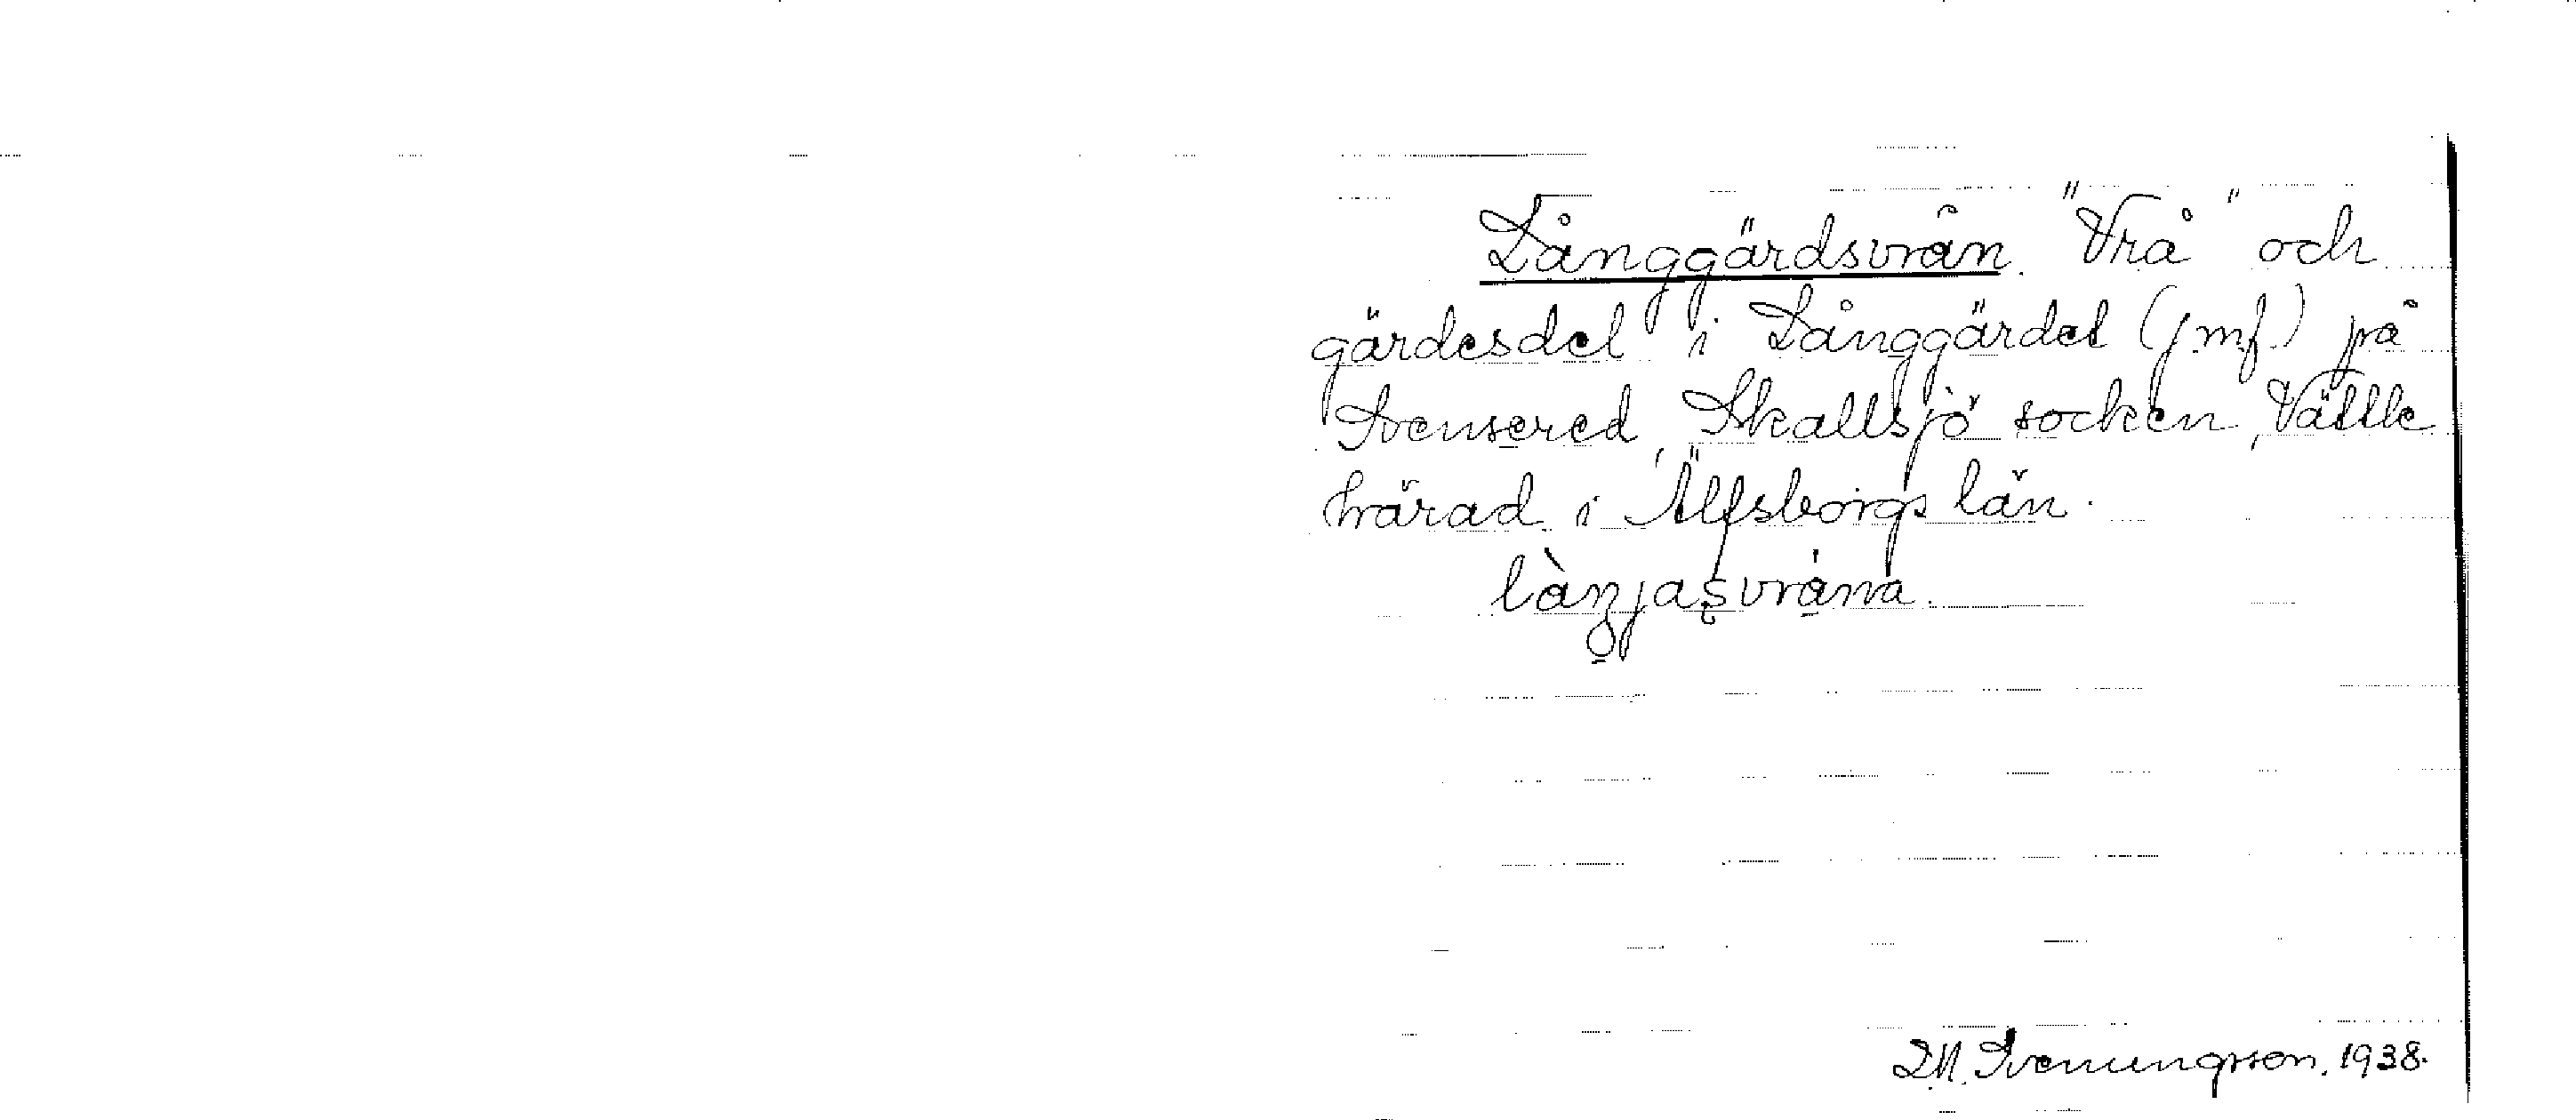 Långgärdsvrån. "Vrå" och
gärdesdel i Långgärdet (jmf.) på
Svensered, Skallsjö socken, Vättle
härad i Älfsborgs län.
D.N. Svenungsson. 1938.